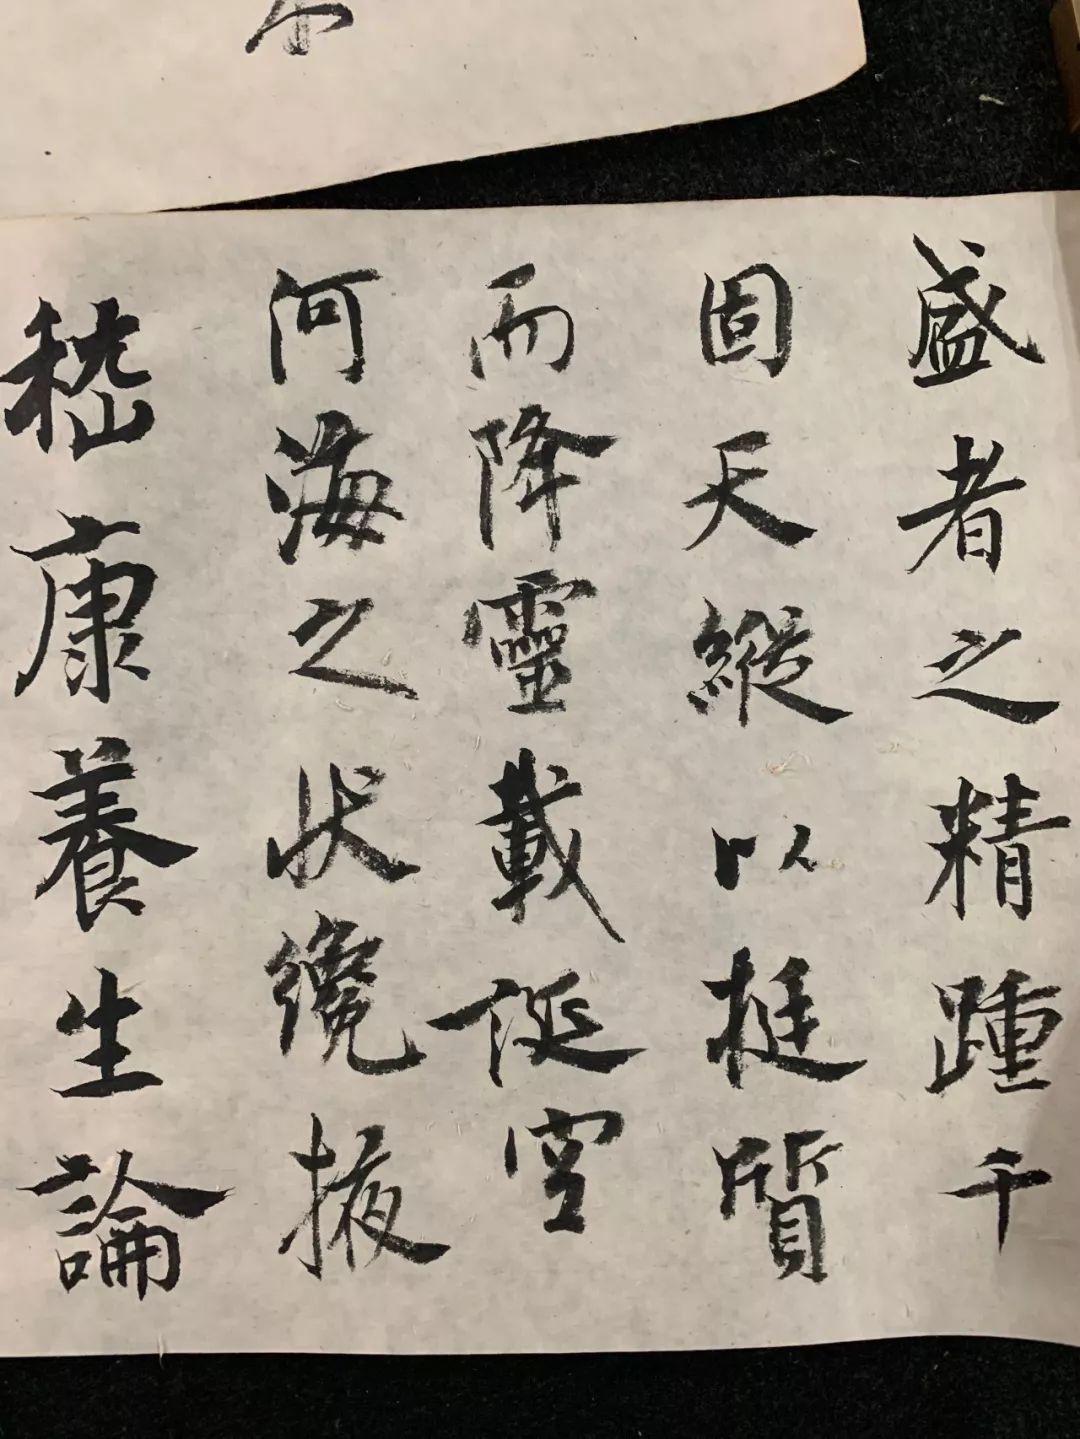 盛者之精踵千
固天縱以挺質
而降靈載誕空
河海之狀纔掖
嵇康養生論